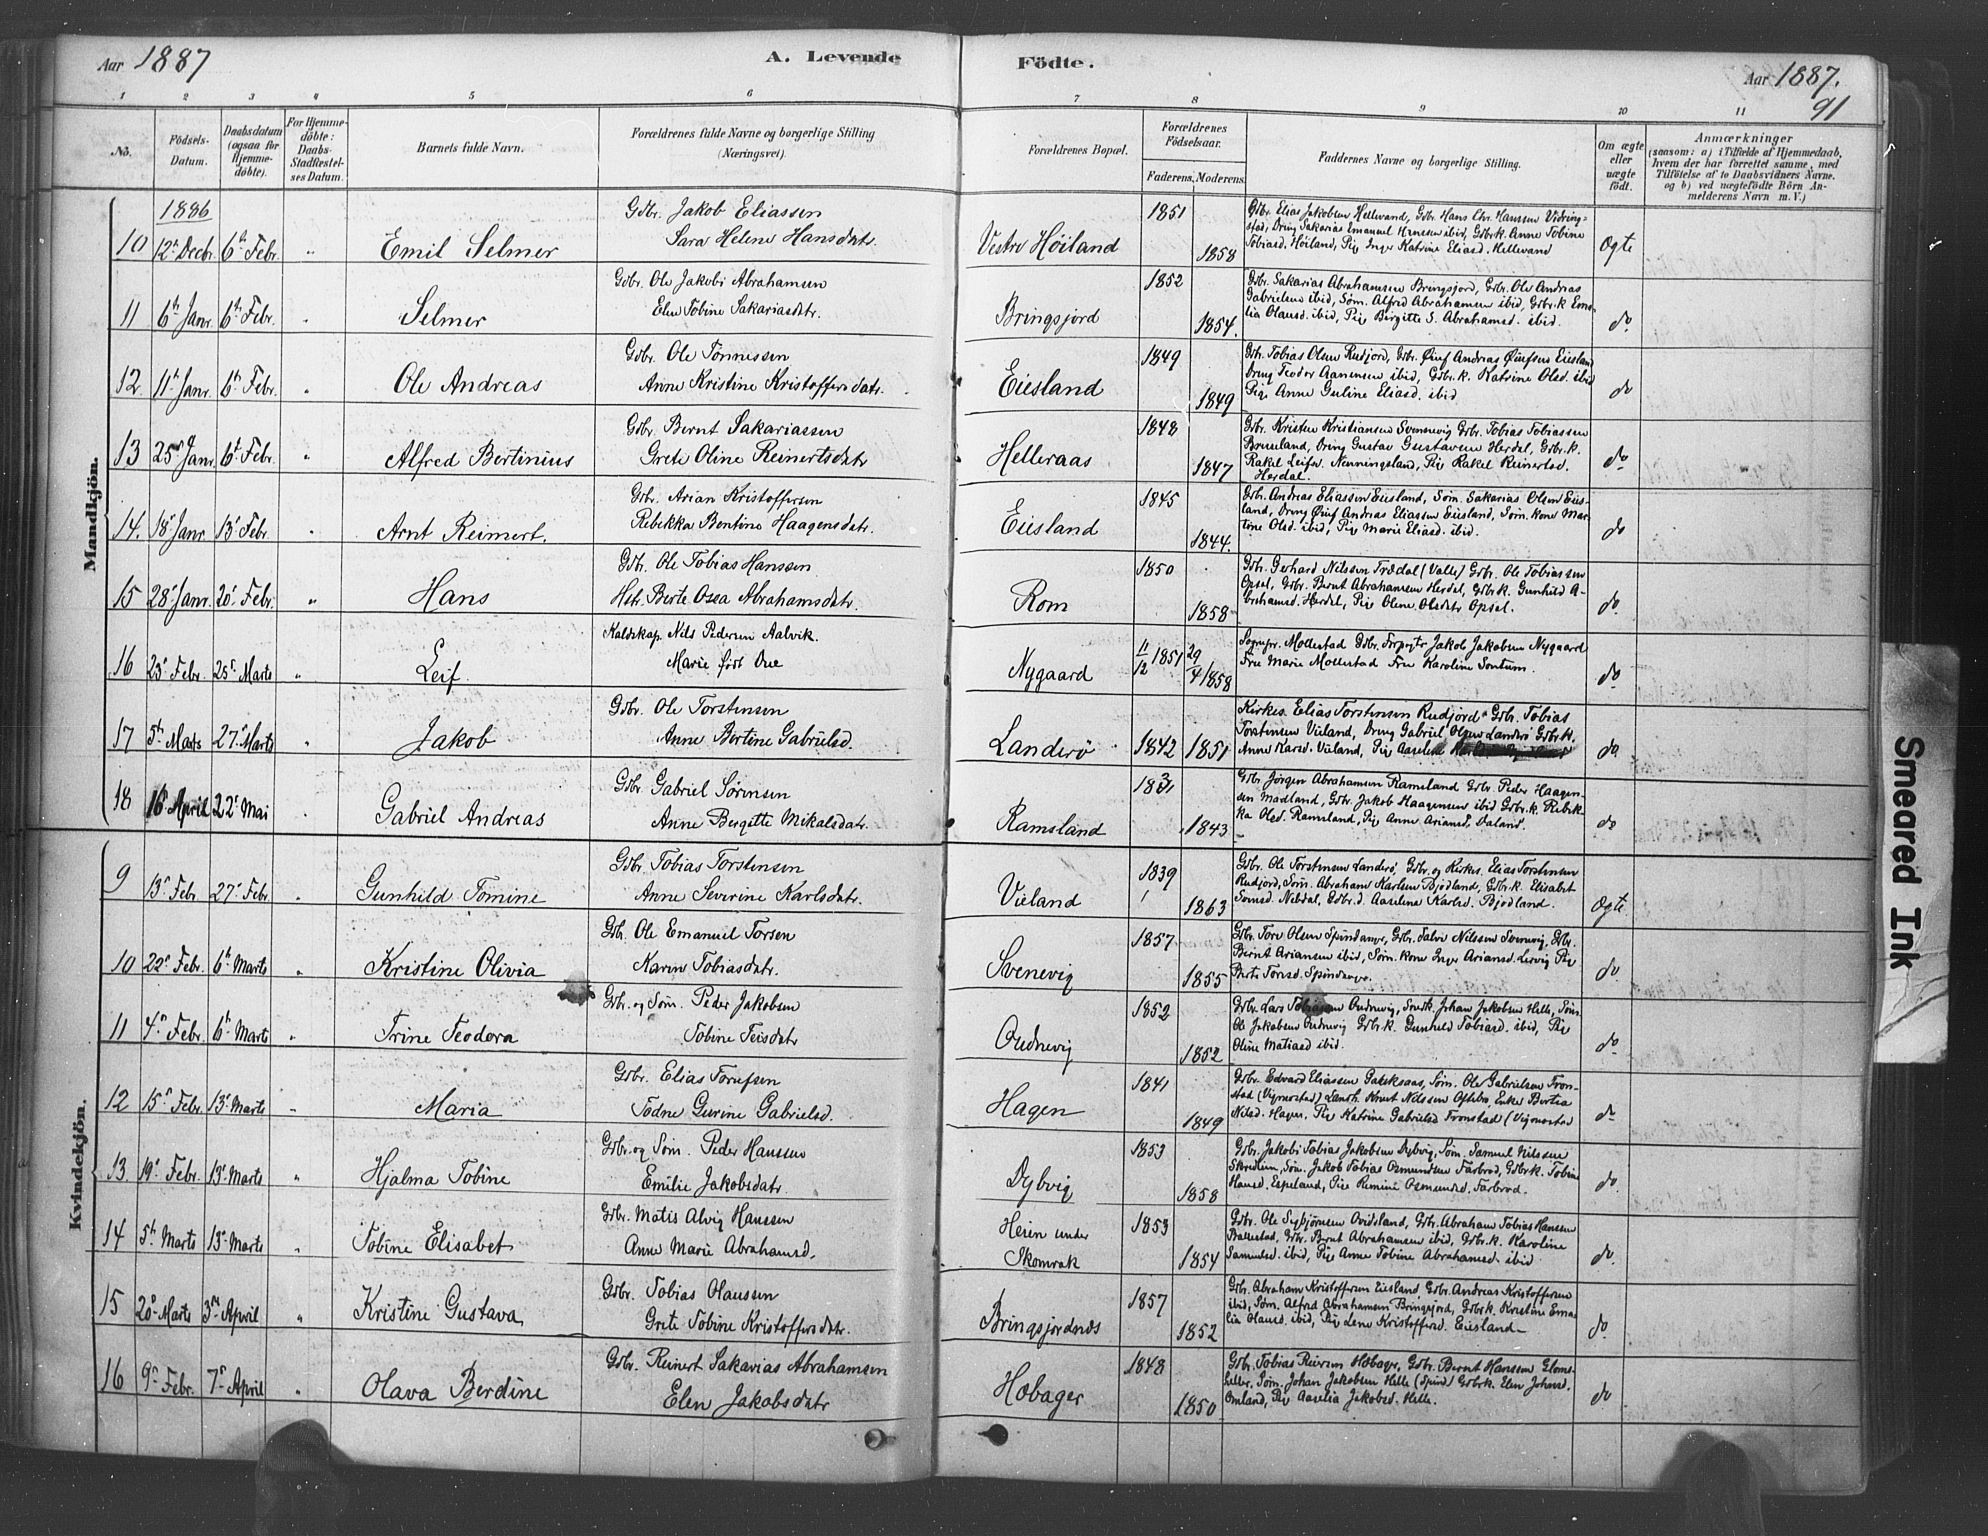 Aar 1887 A. Levende
Födte. Aar 1887.
91
1 2 3 4 5 6
7 8 9 10 11
No.
Födsels-
Datum.
Daabsdatum
(ogsaa for
Hjemme-
döbte).
For Hjemme-
döbte:
Daabs-
Stadfæstel-
ses Datum.
Barnets fulde Navn.
Forældrenes fulde Navne og borgerlige Stilling
(Næringsvei).
Forældrenes Bopæl.
Forældrenes
Födselsaar.
Faderens. Moderens.
Faddernes Navne og borgerlige Stilling.
Om ægte
eller
uægte
födt.
Anmærkninger
(saasom: a) i Tilfælde af Hjemmedaab,
hvem der har forrettet samme, med
Tilföielse af to Daabsvidners Navne.
og b) ved uægtefödte Börn An-
melderens Navn m. V.)
Mandkjön.
1886
10 12te Decbr. 6te Febr. " Emil Selmer
Gdbr. Jakob Eliassen
Sara Helene Hansdatr.
Vestre Höiland 1851 1858
Gdbr. Elias Jakobsen Hellevand, Gdbr. Hans Chr. Hanssen Vidring-
stad, Dreng Sakarias Emanuel Hanssen ibid, Gdbrk. Anne Tobine
Tobiasd. Höiland, Pige Inger Katrine Eliasd. Hellevand
Ægte
11 6te Janr. 6te Febr. " Selmer
Gdbr. Ole Jakobi Abrahamsen
Elen Tobine Sakariasdatr.
Bringsjord 1852 1854.
Gdbr. Sakarias Abrahamsen Bringsjord, Gdbr. Ole Andreas
Gabrielsen ibid, Söm. Alfred Abrahamsen ibid, Gdbr.k Emi-
lia Olausd. ibid, Pige Birgitte S. Abrahamsd. ibid.
do
12 11te Janr. 6te Febr. " Ole Andreas
Gdbr. Ole Tönnessen
Anne Kristine Kristoffersdatr.
Eiesland 1849 1849
Gdbr. Tobias Olsen Rudjord, Gdbr. Öiuf Andreas Öiufsen Eiesland
Dreng Teodor Aanensen ibid, Gdbr.k. Katrine Olsd. ibid
Pige Anne Guline Eliasd. ibid
do
13 25de Janr. 6te Febr. " Alfred Bertinius
Gdbr. Bernt Sakariassen
Grete Oline Reinertsdatr
Helleraas 1848 1847
Gdbr. Kristen Kristiansen Svenevig Gdbr. Tobias Tobiassen
Bruseland, Dreng Gustav Gustavsen Herdal, Gdbr.k.
Rakel Leifsd. Nenningsland, Pige Rakel Reinertsd.
Herdal.
do
14. 18de Janr. 13de Febr. " Arnt Reinert.
Gdbr. Arian Kristoffersen
Rebekka Bentine Haagensdatr.
Eiesland 1845 1844.
Gdbr. Andreas Eliassen Eiesland, Söm. Sakarias Olsen Eies-
land, Dreng Öiuf Andreas Eliassen Eiesland, Söm. kone Mar-
tine Olsd. ibid, Pige Marie Eliasd. ibid.
do
15 28de Janr. 20de Febr. " Hans
Gdbr. Ole Tobias Hanssen
Hstr. Berte Osea Abrahamsdatr.
Rom 1850 1858
Gdbr. Gerhard Nilssen Trædal (Valle) Gdbr. Ole Tobiassen
Opsal, Gdbr. Bernt Abrahamsen Herdel, Gdbr.k. Gunhild A-
brahamsd. Herdel, Pige Olene Olsdatr Opsel.
do
16 23de Febr. 25de Marts " Leif
Kaldskap. Nils Pedersen Aalvik.
Marie föst Due
Nygaard 11/12 1851 29/4 1858
Sognepr. Mollestad Gdbr. Forpagtr Jakob Jakobsen Nygaard
Frue Marie Mollestad Frue Karoline Sontum.
do
17 5te Marts 27de Marts " Jakob
Gdbr. Ole Torstensen
Anne Bertine Gabrielsd.
Landerö 1842 1851
Kirkes. Elias Torstensen Rudjord Gdbr. Tobias
Torstensen Vieland, Dreng Gabriel Olsen Landerö Gdbr.k.
Anne Karsd. Vieland, Pige Aaseline
do
18 16de April 22de Mai Gabriel Andreas
Gdbr. Gabriel Sörensen
Anne Bergitte Mikalsdatr.
Ramsland 1831 1843
Gdbr. Jörgen Abrahamsen Ramsland Gdbr. Peder Haagen-
sen Madland, Gdbr. Jakob Haagensen ibid Gdbr.k. Rebek-
ka Olsd. Ramsland, Pige Anne Ariansd. Daland.
do
Kvindekjön.
9 13de Febr. 27de Febr " Gunhild Tomine
Gdbr. Tobias Torstensen
Anne Severine Karlsdatr.
Vieland 1839 1863
Gdbr. Ole Torstensen Landerö, Gdbr. og Kirkes. Elias Torstensen
Rudjord, Söm. Abraham Karlsen Bjödland, Gdbr.k. Elisabet
Nebdal, Gdbr.d. Aaselene Karlsd. Bjodland.
Ægte
10 22de Febr. 6te Marts " Kristine Olivia
Gdbr. Ole Emanuel Torsen
Karen Tobiasdatr.
Svenevig 1857 1855
Gdbr. Tore Olsen Spindange, Gdbr. Salve Nilssen Svenevig, Gdbr.
Bernt Ariansen ibid, Söm. kone Inger Ariansd. Lervig Pige
Berte Torsd. Spindange.
do
11 4de Febr. 6te Marts " Trine Teodora
Gdbr. og Söm. Peder Jakobsen
Tobine Teisdatr
Oudnevig 1852 1852
Gdbr. Lars Tobiassen Oudnevig, Johan Jakobsen Helle, Söm.
Ole Jakobsen Oudnevig Gdbr.k. Gunhild Tobiasd. ibid, Pige
Oline Matiasd ibid.
do
12 15de Febr. 13de Marts " Maria
Gdbr. Elias Torufsen
Todne Gurine Gabrielsd.
Hagen 1841 1849
Gdbr. Edvard Eliassen, Söm. Ole Gabrielsen Tron-
stad (Vigmostad) Knut Nilssen, Enke Bertea
Nilsd. Hagen, Pige Katrine Gabrielsd Tronstad (Vigmostad
do
13 19de Febr. 13de Marts " Hjalma Tobine
Gdbr. og Söm. Peder Hanssen
Emilie Jakobsdatr.
Dybvig 1853 1858
Gdbr. Jakobi Tobias Jakobsen Dybvig, Söm. Samuel Nilssen
Skredlem, Söm. Jakob Tobias Osmundsen Farbrod, Gdbr.k. Tobine
Hansd. Espeland, Pige Remine Osmundsd. Farbrod.
do.
14 5te Marts 13de Marts " Tobine Elisabet
Gdbr. Matis Alvig Hanssen
Anne Marie Abrahamsd.
Heien under
Skomrak 1853 1854
Gdbr. Ole Sigbjörnsen Ovidsland, Gdbr. Abraham Tobias Hanssen
Ballestad, Gdbr. Bernt Abrahamsen ibid, Gdbr.k. Karoline
Samuelsd. ibid, Pige Anne Tobine Abrahamsd. ibid
do.
15 20de Marts 3die April " Kristine Gustava
Gdbr. Tobias Olaussen
Grete Tobine Kristoffersdatr.
Bringsjordnes 1857 1852
Gdbr. Abraham Kristoffersen Eiesland, Gdbr. Andreas Kristoffersen
ibid, Söm. Alfred Abrahamsen Bringsjord, Gdbr.k. Kristine Ema-
lia Olausd. ibid, Pige Lene Kristoffersd. Eiesland
do
16 9de Febr. 7de April " Olava Berdine
Gdbr. Reinert Sakarias Abrahamsen
Elen Jakobsdatr
Hobager 1848 1850
Gdbr. Tobias Reiersen Hobager, Gdbr. Bernt Hanssen,
Söm. Johan Jakobsen Helle (Spind) Gdbr.k. Elen Johnsd.
Omland, Pige Aaselia Jakobsd. Helle.
do
Smeared Ink